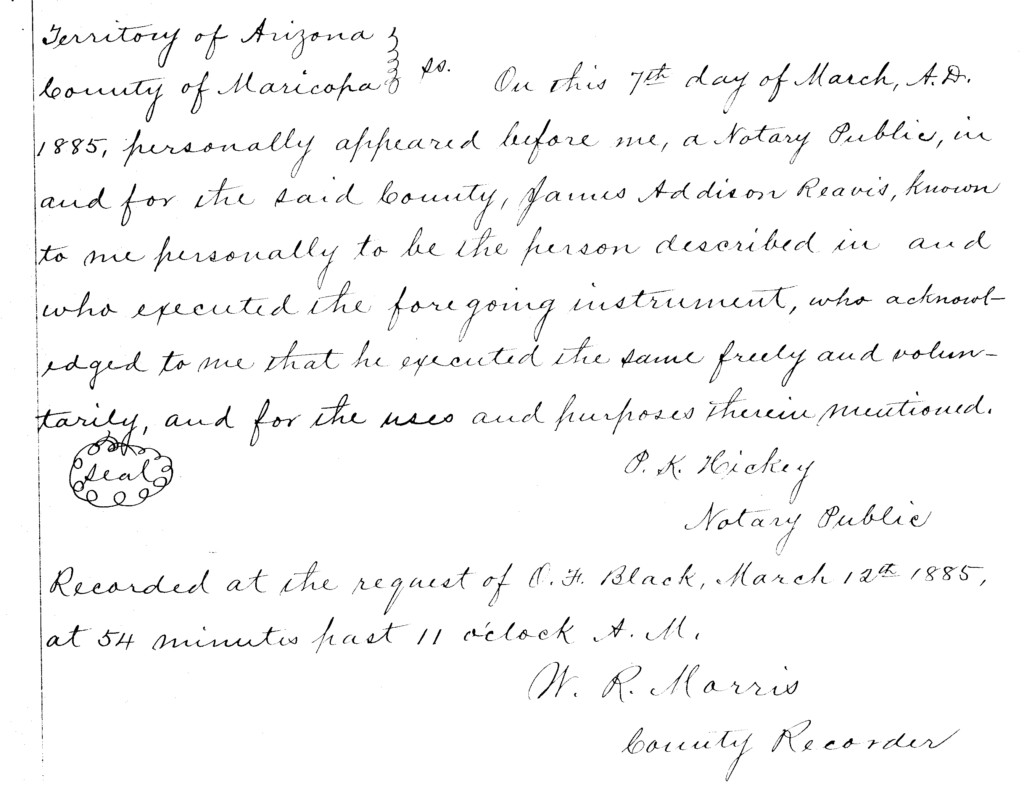 Territory of Arizona
County of Maricopa } ss. On this 7th day of March, A.D.
1885, personally appeared before me, a Notary Public, in
and for the said County, James Addison Reavis, known
to me personally to be the person described in and
who executed the foregoing instrument, who acknowl-
edged to me that he executed the same freely and volun-
tarily, and for the uses and purposes therein mentioned.
Seal
P. K. Hickey
Notary Public
Recorded at the request of O. F. Black, March 12th 1885,
at 54 minutes past 11 o'clock A. M.
W. R. Morris
County Recorder